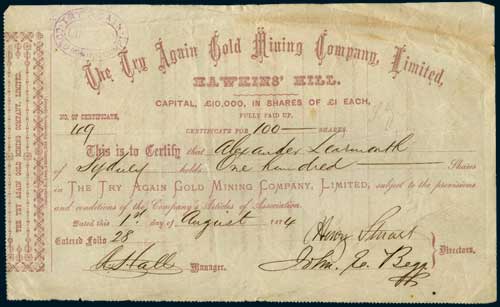 The Try Again Gold Mining Company, Limited,
HAWKINS' HILL.
CAPITAL, £10,000, IN SHARES OF £1 EACH,
FULLY PAID UP.
NO. OF CERTIFICATE,
CERTIFICATE FOR 100 SHARES.
109
This is to Certify that Alexander Learmonth
of Sydney holds One hundred Shares
in THE TRY AGAIN GOLD MINING COMPANY, LIMITED, subject to the provisions
and conditions of the Company's Articles of Association.
Dated this 1st day of August 1874
Entered Folio 28
Henry Stuart
Manager.
John Begg
Directors.
THE TRY AGAIN GOLD MINING COMPANY, LIMITED.